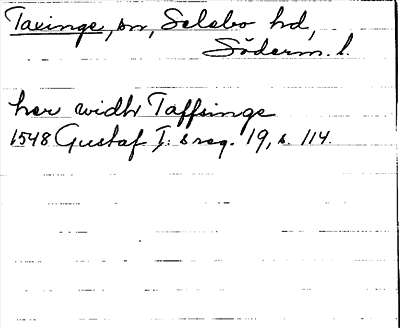 Taxinge, sn, Selebo hd,
Söderm. l.
her widh Taffsinge
1548 Gustaf I: s reg. 19, s. 114.